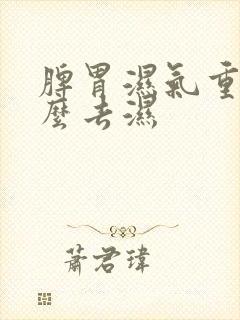 脾胃濕氣重
麼去濕
蕭君瑋